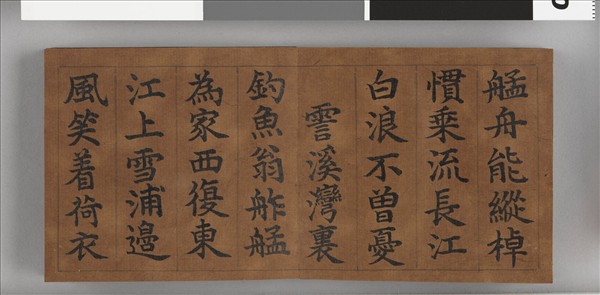 艋舟能縱棹
慣乘流長江
白浪不曾憂
霅溪灣裏
釣魚翁舴艋
為家西復東
江上雪浦邊
風笑着荷衣